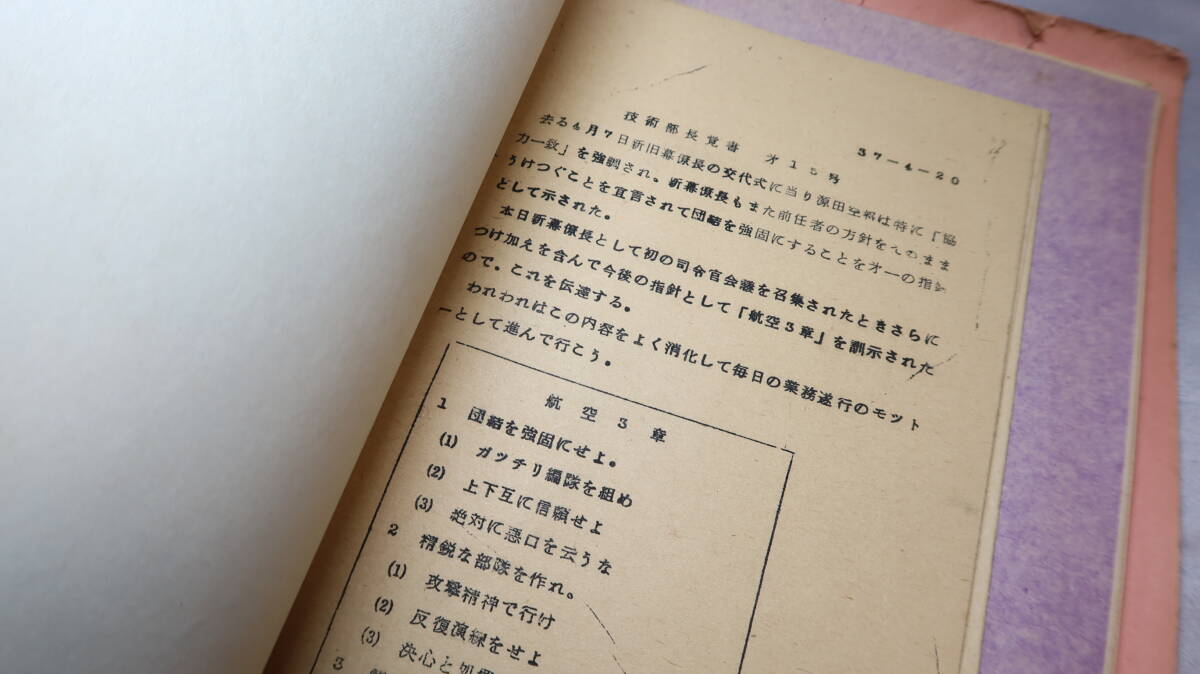 技術部長覚書 オ15号 37-4-20
去る4月7日新旧幕僚長の交代式に当り源田空将は特に「協
力一致」を強調され、新幕僚長もまた前任者の方針をそのまま
うけつぐことを宣言されて団結を強固にすることをオ一の指針
として示された。
本日新幕僚長として初の司令官会議を召集されたときさらに
つけ加えを含んで今後の指針として「航空3章」を訓示された
ので、これを伝達する。
われわれはこの内容をよく消化して毎日の業務遂行のモツト
ーとして進んで行こう。
航空3章
1 団結を強固にせよ。
(1) ガツチリ編隊を組め
(2) 上下互に信頼せよ
(3) 絶対に悪口を云うな
2 精鋭な部隊を作れ。
(1) 攻撃精神で行け
(2) 反復演練をせよ
(3) 決心と処
3